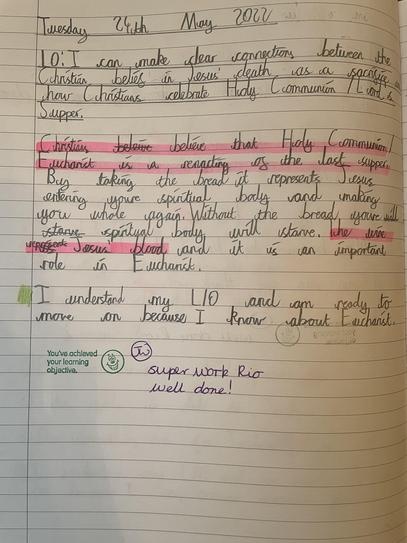 Tuesday 24th May 2022
LO: I can make clear connections between the
Christian beliefs in Jesus' death as a sacrifice
how Christians celebrate Holy Communion / Lord's
Supper.
Christians believe believe that Holy Communion/
Eucharist is a renacting of the last supper.
Buy taking the bread it represents Jesus
entering youre spiritual body and making
you whole again. Without the bread, youre
starve spirtual body will starve. the wine
represents Jesus' blood and it is an important
role in Eucharist.
I understand my L/O and am ready to
move on because I know about Eucharist.
You've achieved
your learning
objective.
super work Rio
well done!